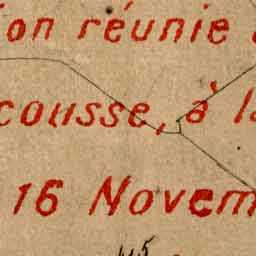 ion réunie
cousse, à l
16 Novem
45